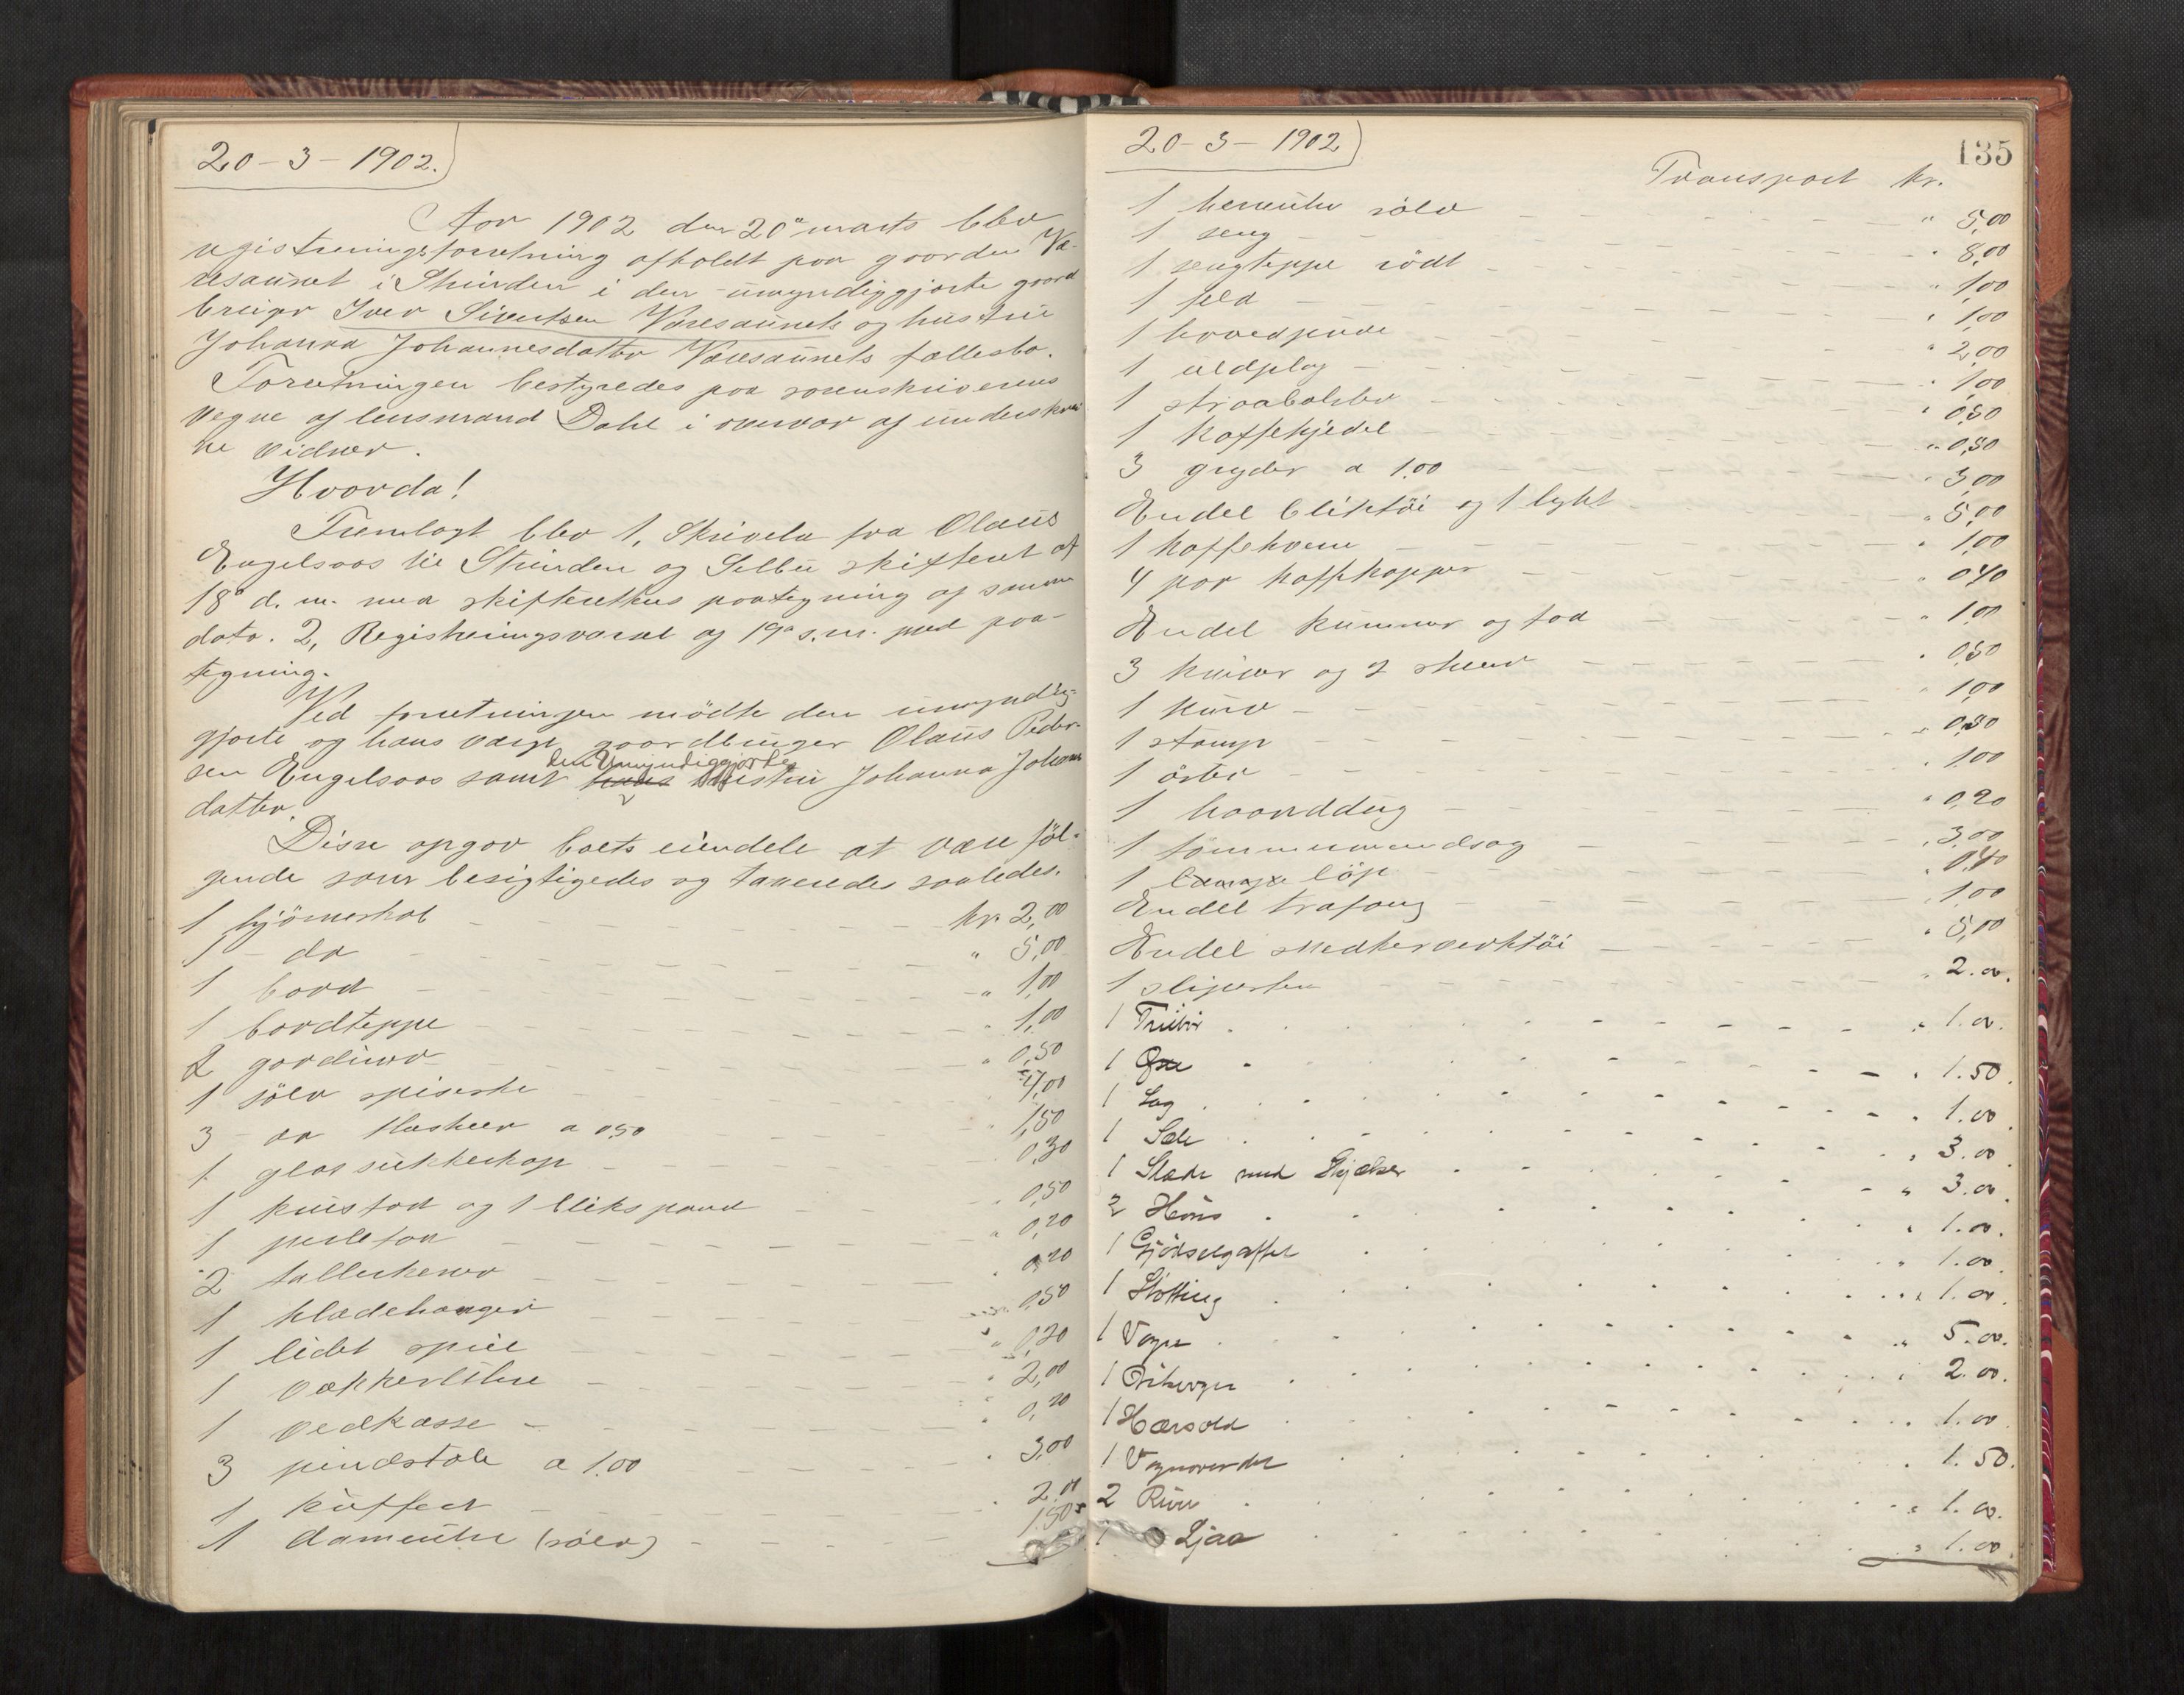 20-3-1902.
Aar 1902 den 20de marts blev
registreringsforretning afholdt paa gaarden Væ-
resaunet i Strinden i den umyndiggjorte gaard
bruger Iver Sivertsen Væresaunets og hustru
Johanna Johannesdatter Væresaunets fællesbo.
Forretningen bestyredes paa sorenskriverens
vegne af lensmand Dahl i overvær af underskrev
ne vidner.
Hvorda!
Fremlagt blev 1, Skrivelse fra Olaus
Engelsaas til Strinden og Selbu skifteret af
18de d. m. med skifterettens paategning af samme
dato. 2, Registreringsvarsel af 19de s. m. med paa-
tegning.
Ved forretningen mödte den umyndig-
gjorte og hans værge gaardbruger Olaus Peder-
sen Engelsaas samt den Umyndiggjortes hustru Johanna Johannes
datter.
Disse opgav boets eiendele at være föl-
gende som besigtigedes og taxeredes saaledes.
1 hjörneskab kr. 2,00
1 - do " 5,00
1 bord " 1,00
1 bordteppe " 1,00
2 gardiner " 0,50
1 sölv spiseske " 4,00
3 do theskeer a 0,50 " 1,50
1 glas sukkerkop " 0,30
1 knivfad og 1 blikspand " 0,50
1 0,20
2 tallerkener 0,20
1 klædehanger 0,50
1 lidet speil " 0,20
1 vækkeruhr " 2,00
1 vedkasse " 0,20
3 pindstole a 1.00 " 3,00
1 kuffert " 2,00
1 dameuhr (sölv) 1,50
20-3-1902
135
Transport kr.
1 herreuhr sölv " 5,00
1 seng " 8,00
1 sengteppe rödt " 1,00
1 feld " 1,00
1 hovedpude " 2,00
1 uldplag " 1,00
1 straabolster " 0,50
1 kaffekjedel " 0,80
3 gryder a 1.00 " 3,00
Endel bliktöi og 1 lygt " 5,00
1 kaffekvern " 1,00
4 par kaffekopper " 0,40
Endel kummer og fad " 1,00
3 kniver og 2 skeer " 0,50
1 kurv " 1,00
1 stamp " 0,80
1 öster " 1,00
1 haanddug " 0,20
1 tömmermandsag " 3,00
1 löp " 0,40
Endel træfang " 1,00
Endel snedkerverktöi " 5,00
1 slipesten " 2.00.
1 " 1.00.
1 Öxe " 1.50.
1 Sag " 1.00.
1 Sele " 3.00.
1 Slæde med Skjæker " 3.00.
2 Höns " 1.00.
1 Gjödselgaffel " 1.00.
1 Stötting " 1.00.
1 Vogn " 5.00.
1 " 2.00.
1 " 1.00.
1 " 1.50.
2 " 1.00.
1 Ljaa " 1.00